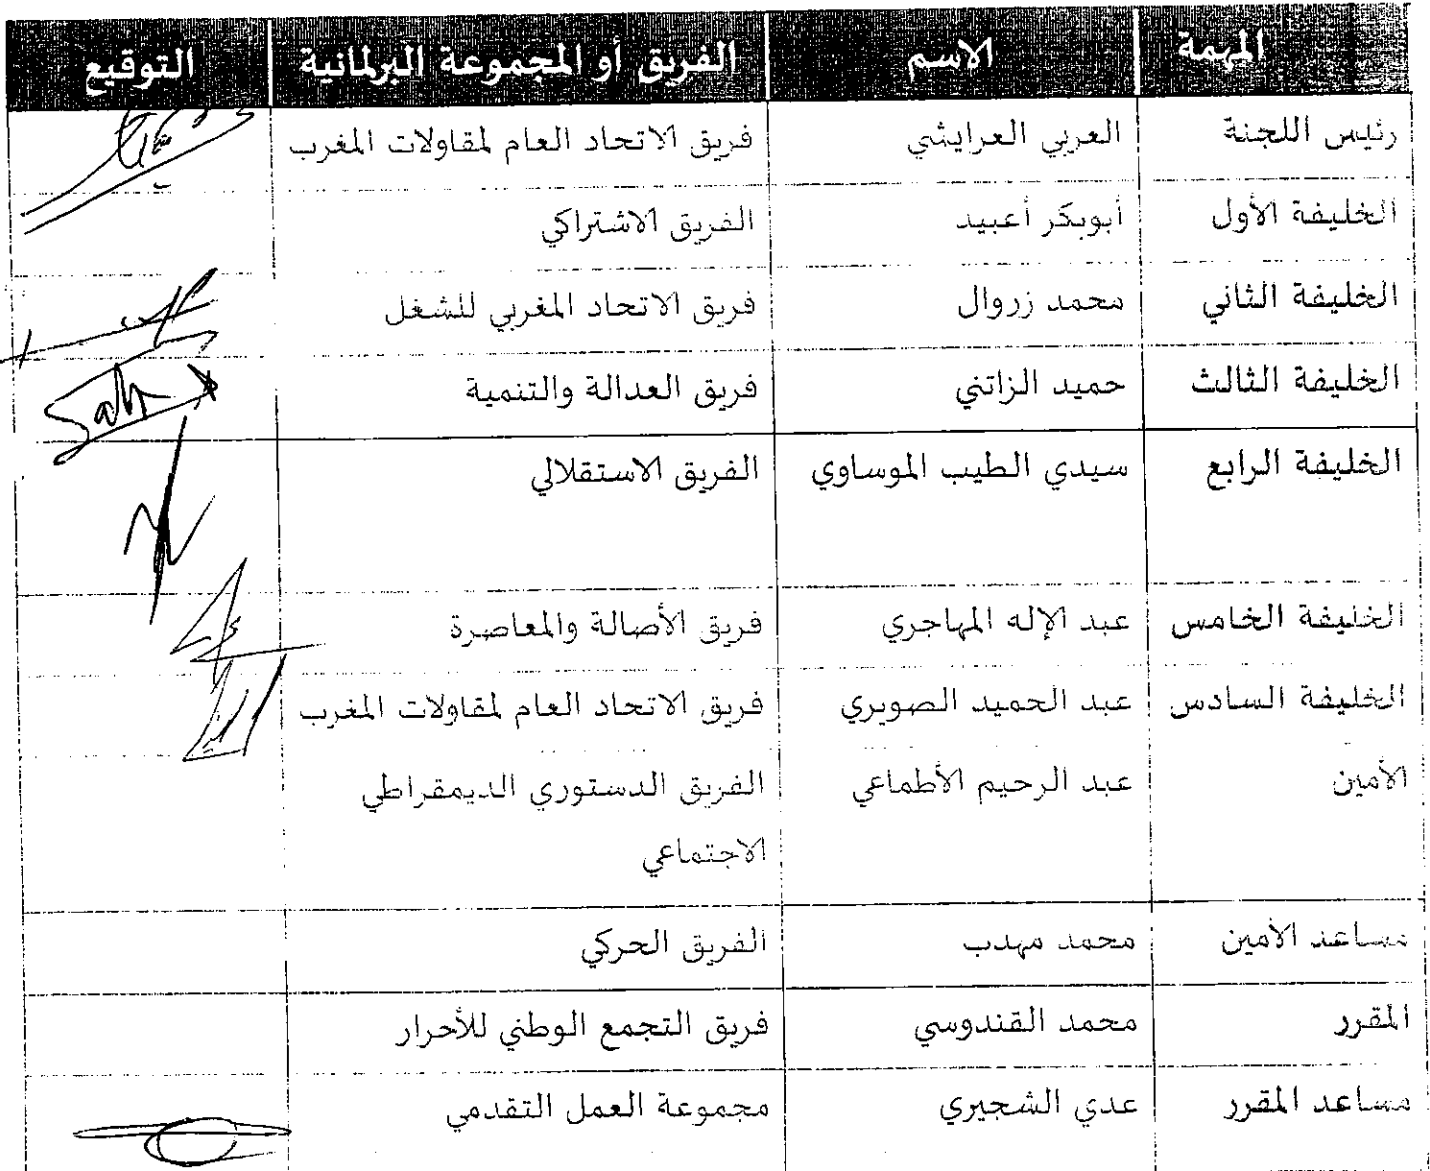 المهمة الاسم الفريق أو المجموعة البرلمانية التوقيع
رئيس اللجنة العربي العرايشي فريق الاتحاد العام لمقاولات المغرب
الخليفة الأول أبوبكر أعبيد الفريق الاشتراكي
الخليفة الثاني محمد زروال فريق الاتحاد المغربي للشغل
الخليفة الثالث حميد الزاتني فريق العدالة والتنمية
الخليفة الرابع سيدي الطيب الموساوي الفريق الاستقلالي
الخليفة الخامس عبد الإله المهاجري فريق الأصالة والمعاصرة
الخليفة السادس عبد الحميد الصويري فريق الاتحاد العام لمقاولات المغرب
الأمين عبد الرحيم الأطماعي الفريق الدستوري الديمقراطي
الاجتماعي
مساعد الأمين محمد مهدب الفريق الحركي
المقرر محمد القندوسي فريق التجمع الوطني للأحرار
مساعد المقرر عدي الشجيري مجموعة العمل التقدمي